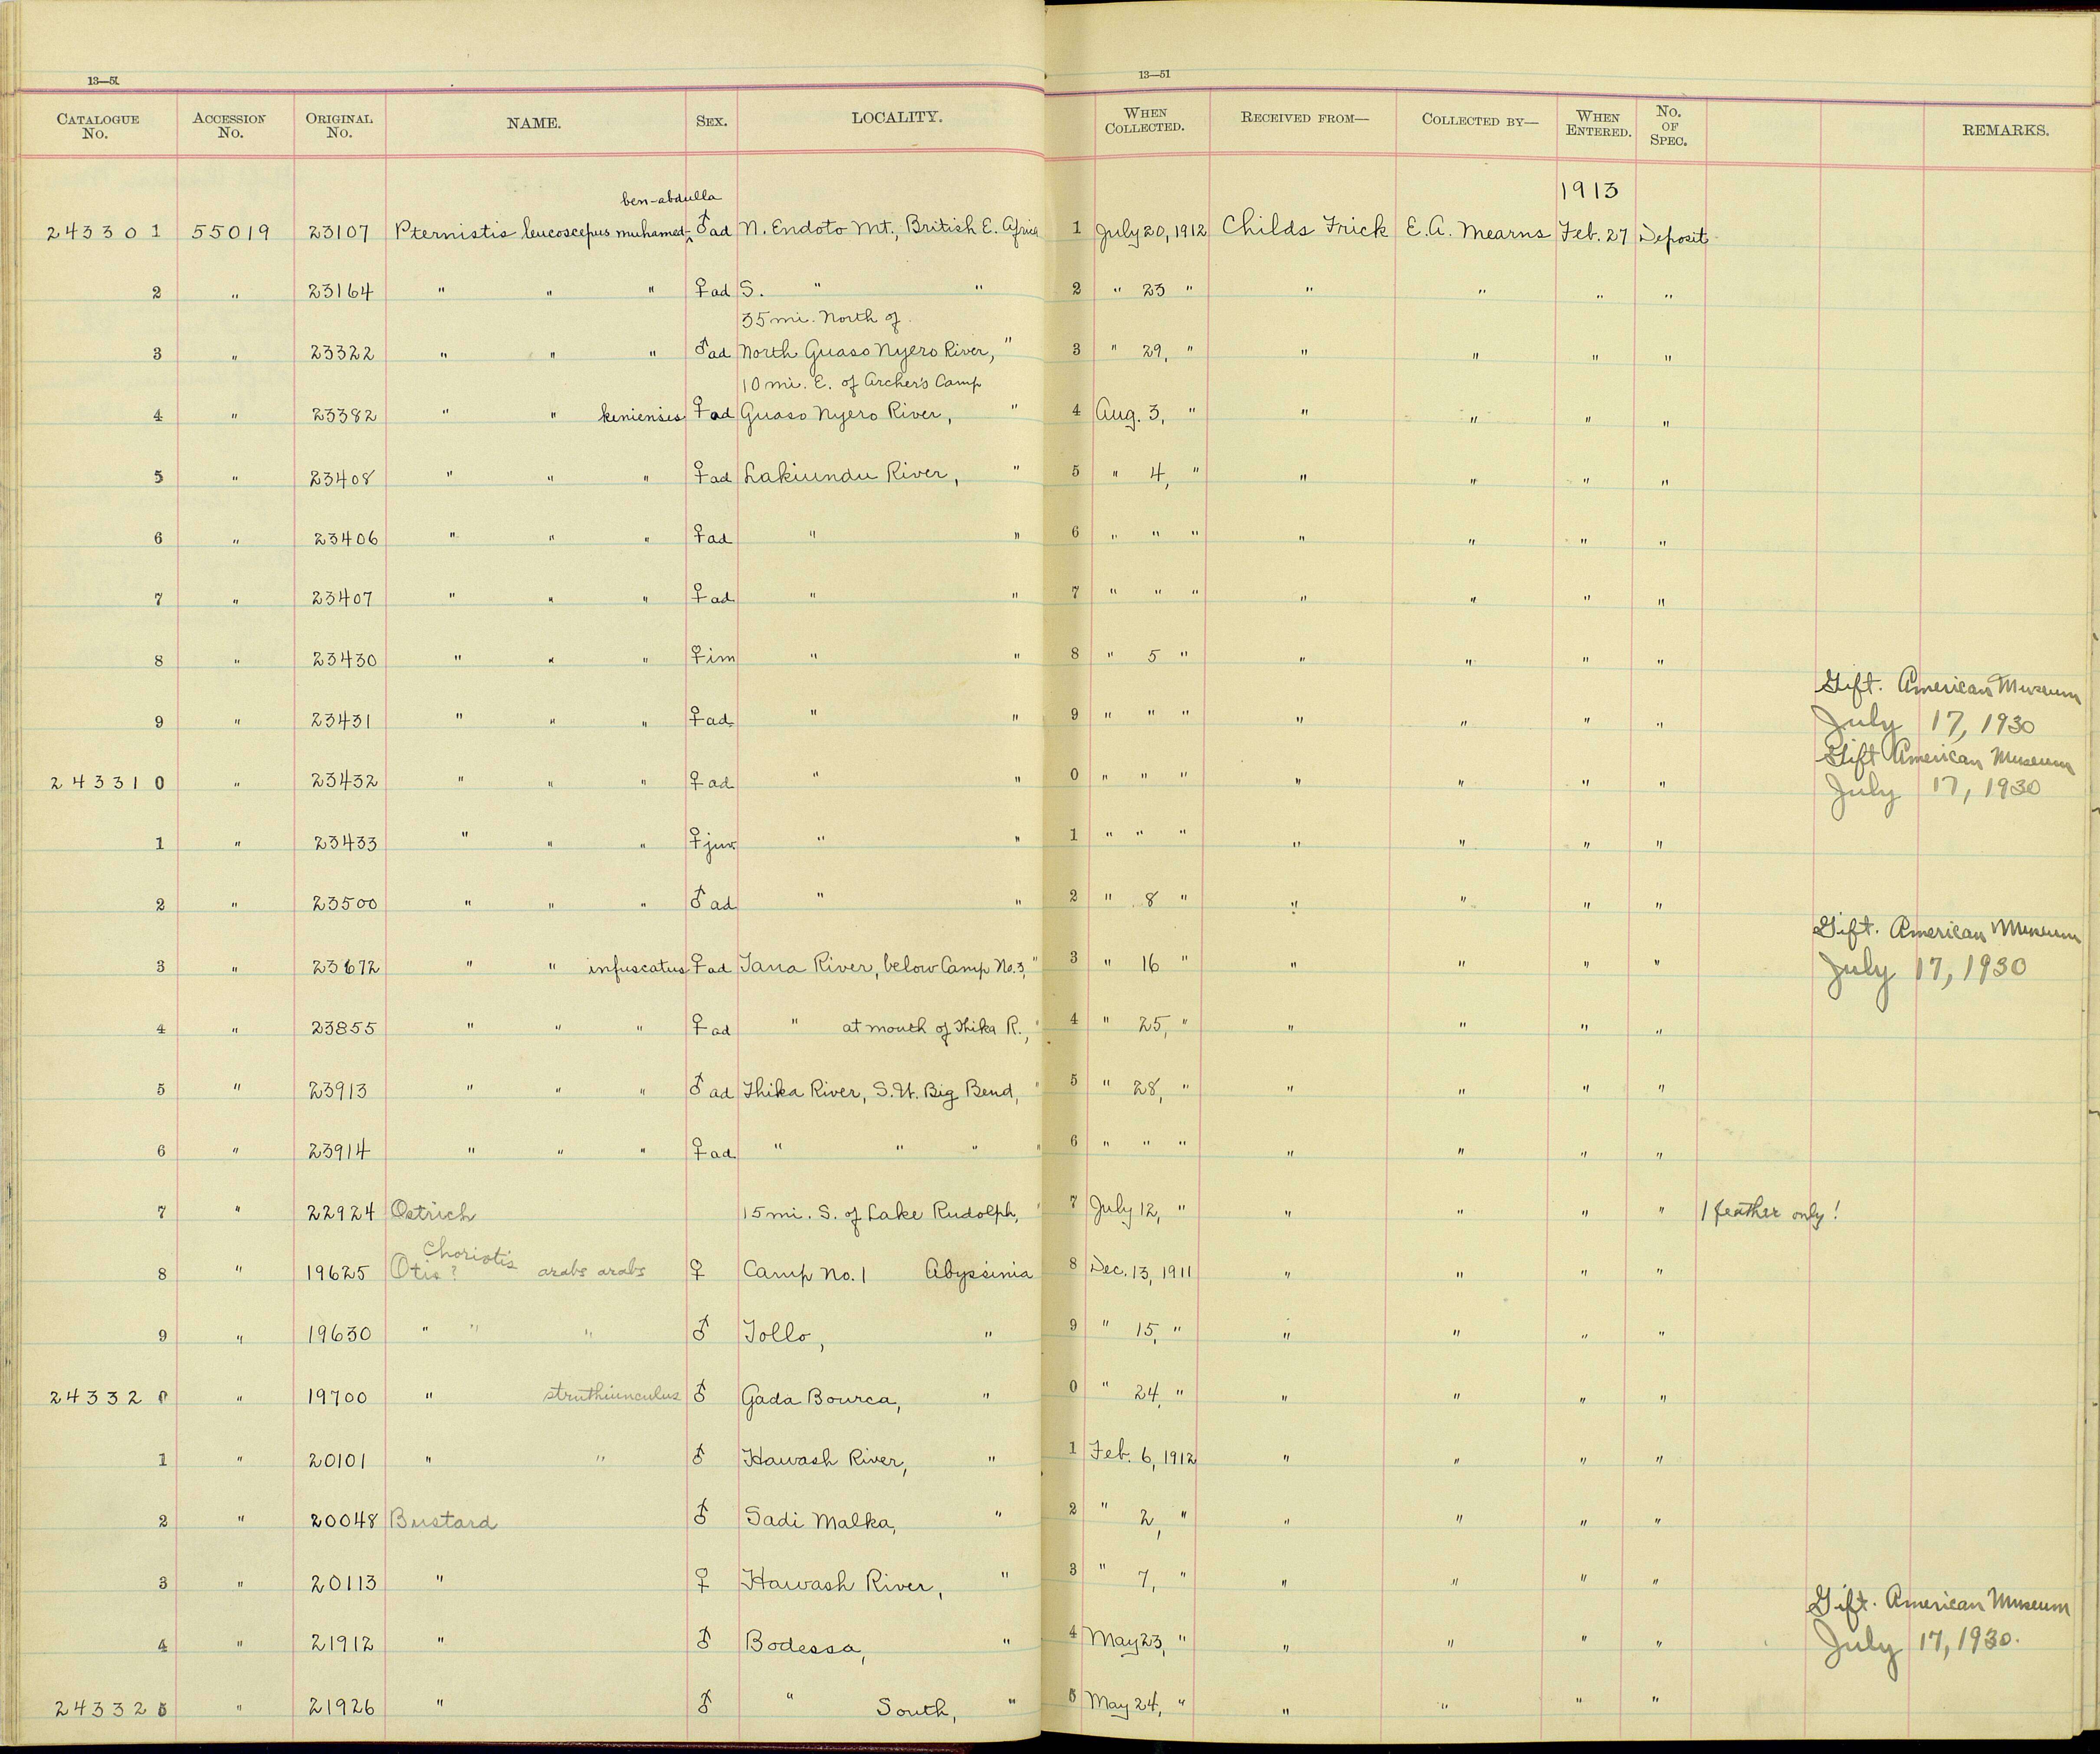 13—51
13—51
CATALOGUE No. ACCESSION No. ORIGINAL No. NAME. SEX. LOCALITY. WHEN COLLECTED. RECEIVED FROM— COLLECTED BY— WHEN ENTERED. No. OF SPEC. REMARKS.
1913
ben-abdulla
243301 55019 23107 Pternistis leucoscepus muhamed- ♂ad N. Endoto Mt., British E. Africa 1 July 20, 1912 Childs Frick E. A. Mearns Feb. 27 Deposit
2 " 23164 " " " ♀ad S. " " 2 " 23 " " " " "
35 mi. North of
3 " 23322 " " " ♂ad North Guaso Nyero River, " 3 " 29, " " " " "
10 mi. E. of Archer's Camp
4 " 23382 " " keniensis ♀ad Guaso Nyero River, " 4 Aug. 3, " " " " "
5 " 23408 " " " ♀ad Lakiundu River, " 5 " 4, " " " " "
6 " 23406 " " " ♀ad " " 6 " " " " " " "
7 " 23407 " " " ♀ad " " 7 " " " " " " "
8 " 23430 " " " ♀im " " 8 " 5 " " " " "
Gift. American Museum
9 " 23431 " " " ♀ad. " " 9 " " " " " " " July 17, 1930
Gift American Museum
243310 " 23432 " " " ♀ad " " 0 " " " " " " " July 17, 1930
1 " 23433 " " " ♀juv. " " 1 " " " " " " "
2 " 23500 " " " ♂ad " " 2 " 8 " " " " "
Gift. American Museum
3 " 23672 " " infuscatus ♀ad Tana River, below Camp No. 3, " 3 " 16 " " " " " July 17, 1930
4 " 23855 " " " ♀ad " at mouth of Thika R., " 4 " 25, " " " " "
5 " 23913 " " " ♂ad Thika River, S.W. Big Bend, " 5 " 28, " " " " "
6 " 23914 " " " ♀ad. " " " " 6 " " " " " " "
7 " 22924 Ostrich 15 mi. S. of Lake Rudolph, " 7 July 12, " " " " " 1 feather only!
Choriotis
8 " 19625 Otis? arabs arabs ♀ Camp No. 1 Abyssinia 8 Dec. 13, 1911 " " " "
9 " 19630 " " " ♂ Tollo, " 9 " 15, " " " " "
243320 " 19700 " struthiunculus ♂ Gada Bourca, " 0 " 24, " " " " "
1 " 20101 " " ♂ Hawash River, " 1 Feb. 6, 1912 " " " "
2 " 20048 Bustard ♂ Sadi Malka, " 2 " 2, " " " " "
3 " 20113 " ♀ Hawash River, " 3 " 7, " " " " "
Gift. American Museum
4 " 21912 " ♂ Bodessa, " 4 May 23, " " " " " July 17, 1930.
243325 " 21926 " ♂ " South, " 5 May 24, " " " " "